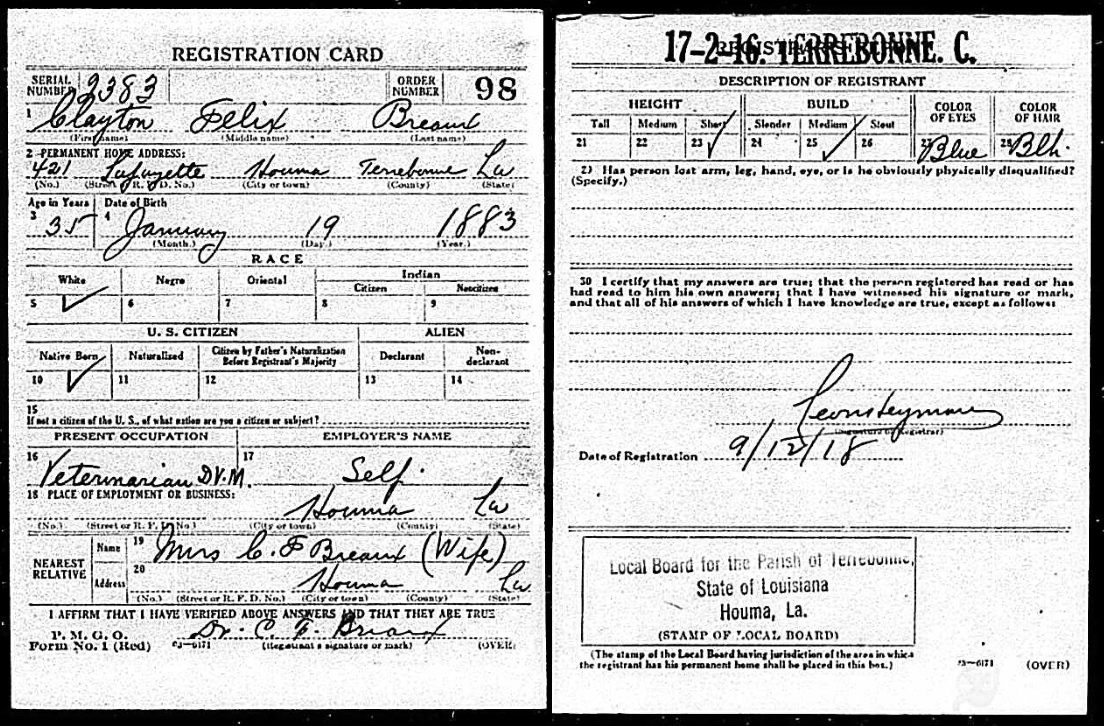 REGISTRATION CARD
SERIAL NUMBER 2383 ORDER NUMBER 98
1 Clayton Felix Breaux
(First name) (Middle name) (Last name)
2 PERMANENT HOME ADDRESS:
421 Lafayette Houma Terrebonne La
(No.) (Street or R. F. D. No.) (City or town) (County) (State)
Age in Years Date of Birth
3 35 4 January 19 1883
(Month.) (Day.) (Year.)
RACE
White Negro Oriental Indian
Citizen Noncitizen
5 ✓ 6 7 8 9
U. S. CITIZEN ALIEN
Native Born Naturalized Citizen by Father's Naturalization Before Registrant's Majority Declarant Non-declarant
10 ✓ 11 12 13 14
15
If not a citizen of the U. S., of what nation are you a citizen or subject?
PRESENT OCCUPATION EMPLOYER'S NAME
16 Veterinarian DV.M. 17 Self.
18 PLACE OF EMPLOYMENT OR BUSINESS:
Houma La
(No.) (Street or R. F. D. No.) (City or town) (County) (State)
NEAREST RELATIVE Name 19 Mrs C. F Breaux (Wife)
Address 20 Houma La
(No.) (Street or R. F. D. No.) (City or town) (County) (State)
I AFFIRM THAT I HAVE VERIFIED ABOVE ANSWERS AND THAT THEY ARE TRUE
P. M. G. O.
Form No. 1 (Red) 03—6171 Dr. C. F. Breaux
(Registrant's signature or mark) (OVER)
17-2-16. TERREBONNE. C.
REGISTRAR'S REPORT
DESCRIPTION OF REGISTRANT
HEIGHT BUILD COLOR OF EYES COLOR OF HAIR
Tall Medium Short Slender Medium Stout
21 22 23 ✓ 24 25 ✓ 26 27 Blue 28 Blk.
29 Has person lost arm, leg, hand, eye, or is he obviously physically disqualified?
(Specify.)
30 I certify that my answers are true; that the person registered has read or has
had read to him his own answers; that I have witnessed his signature or mark,
and that all of his answers of which I have knowledge are true, except as follows:
(Signature of Registrar)
Date of Registration 9/12/18
Local Board for the Parish of Terrebonne,
State of Louisiana
Houma, La.
(STAMP OF LOCAL BOARD)
(The stamp of the Local Board having jurisdiction of the area in which
the registrant has his permanent home shall be placed in this box.)
03—6171 (OVER)